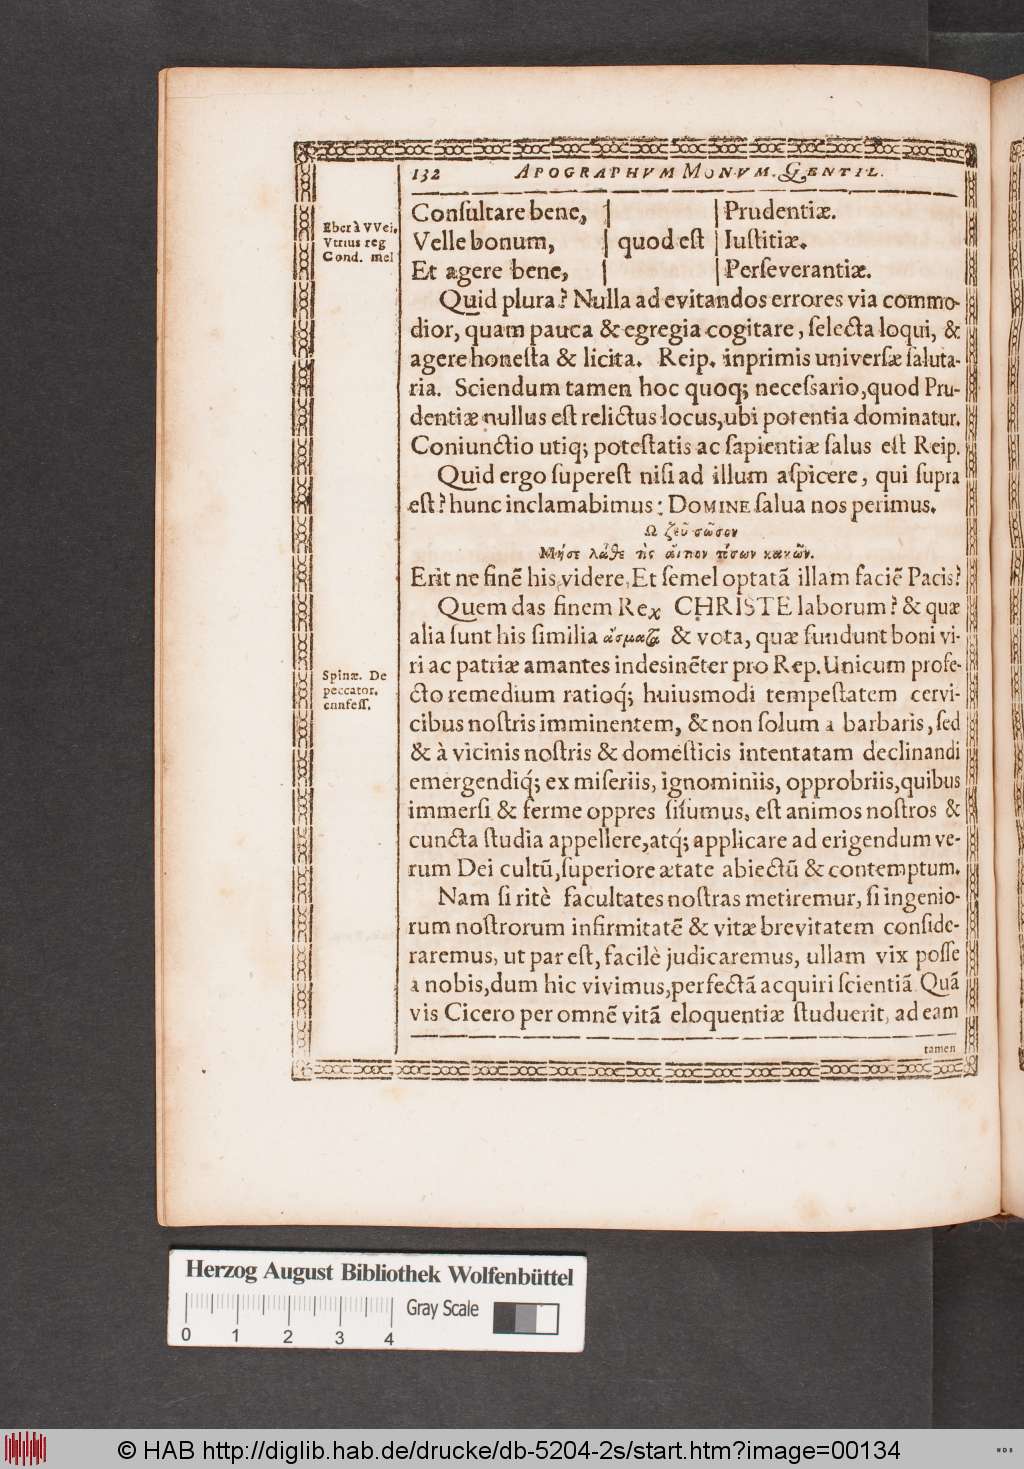 132 APOGRAPHVM MONVM. GENTIL.
Eber à VVei.
Vtrius reg
Cond. mel
Conſultare bene, | | Prudentiæ.
Velle bonum, | quod eſt | Iuſtitiæ.
Et agere bene, | | Perſeverantiæ.
Quid plura? Nulla ad evitandos errores via commo-
dior, quam pauca & egregia cogitare, ſelecta loqui, &
agere honeſta & licita. Reip. inprimis univerſæ ſaluta-
ria. Sciendum tamen hoc quoq; neceſsario, quod Pru-
dentiæ nullus eſt relictus locus, ubi potentia dominatur.
Coniunctio utiq; poteſtatis ac ſapientiæ ſalus eſt Reip.
Quid ergo ſupereſt niſi ad illum aſpicere, qui ſupra
eſt? hunc inclamabimus: DOMINE ſalua nos perimus.
Ω ζεῦ σῶσον
Erit ne finē his videre, Et ſemel optatā illam faciē Pacis?
Quem das finem Rex CHRISTE laborum? & quæ
alia ſunt his ſimilia & vota, quæ fundunt boni vi-
ri ac patriæ amantes indesinēter pro Rep. Unicum profe-
Spinæ. De
peccator.
cnnfeſſ.
cto remedium ratioq́; huiusmodi tempeſtatem cervi-
cibus noſtris imminentem, & non ſolum a barbaris, ſed
& à vicinis noſtris & domeſticis intentatam declinandi
emergendiq́; ex miſeriis, ignominiis, opprobriis, quibus
immerſi & ferme oppres ſiſumus, eſt animos noſtros &
cuncta ſtudia appellere, atq́; applicare ad erigendum ve-
rum Dei cultū, ſuperiore ætate abiectū & contemptum.
Nam ſi ritè facultates noſtras metiremur, ſi ingenio-
rum noſtrorum infirmitatē & vitæ brevitatem conſide-
raremus, ut par eſt, facilè judicaremus, ullam vix poſſe
a nobis, dum hic vivimus, perfectā acquiri ſcientiā Quā
vis Cicero per omnē vitā eloquentiæ ſtuduerit, ad eam
tamen
Herzog August Bibliothek Wolfenbüttel
0 1 2 3 4 Gray Scale
© HAB http://diglib.hab.de/drucke/db-5204-2s/start.htm?image=00134